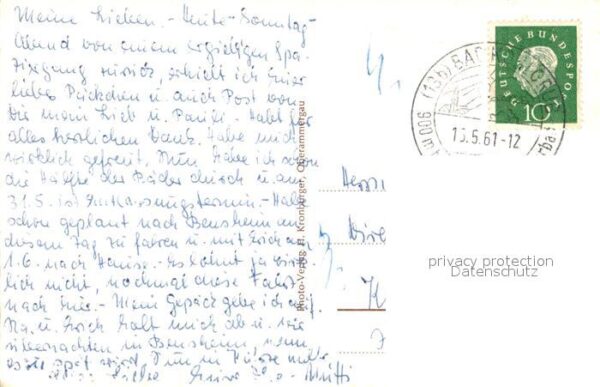 Meine Lieben. - Heute - Sonntag -
Abend von einem ergiebigen Spa-
ziergang zurück, erhielt ich Euer
liebes Päckchen u. auch Post von
Habt für
alles herzlichen Dank. Habe mich
wirklich gefreut. Nun habe ich schon
die Hälfte der Bäder durch u. am
31.5. ist Entlassungstermin - Habe
schon geplant nach Bensheim an
diesem Tag zu fahren u. mit Erich am
1.6. nach Hause. - Es lohnt ja wirk-
lich nicht, nochmal diese Fahrt
nach hier. - Mein Gepäck gebe ich auf.
u. Erich holt mich ab u. wir
übernachten in Bensheim, wenn
es zu spät wird. Nun in Kürze mehr
Eure Mutti
Photo-Verlag H. Kronburger, Oberammergau
DEUTSCHE BUNDESPOST
10
(13b) BAD
13.5.61-12
900 m
Herrn
privacy protection
Datenschutz